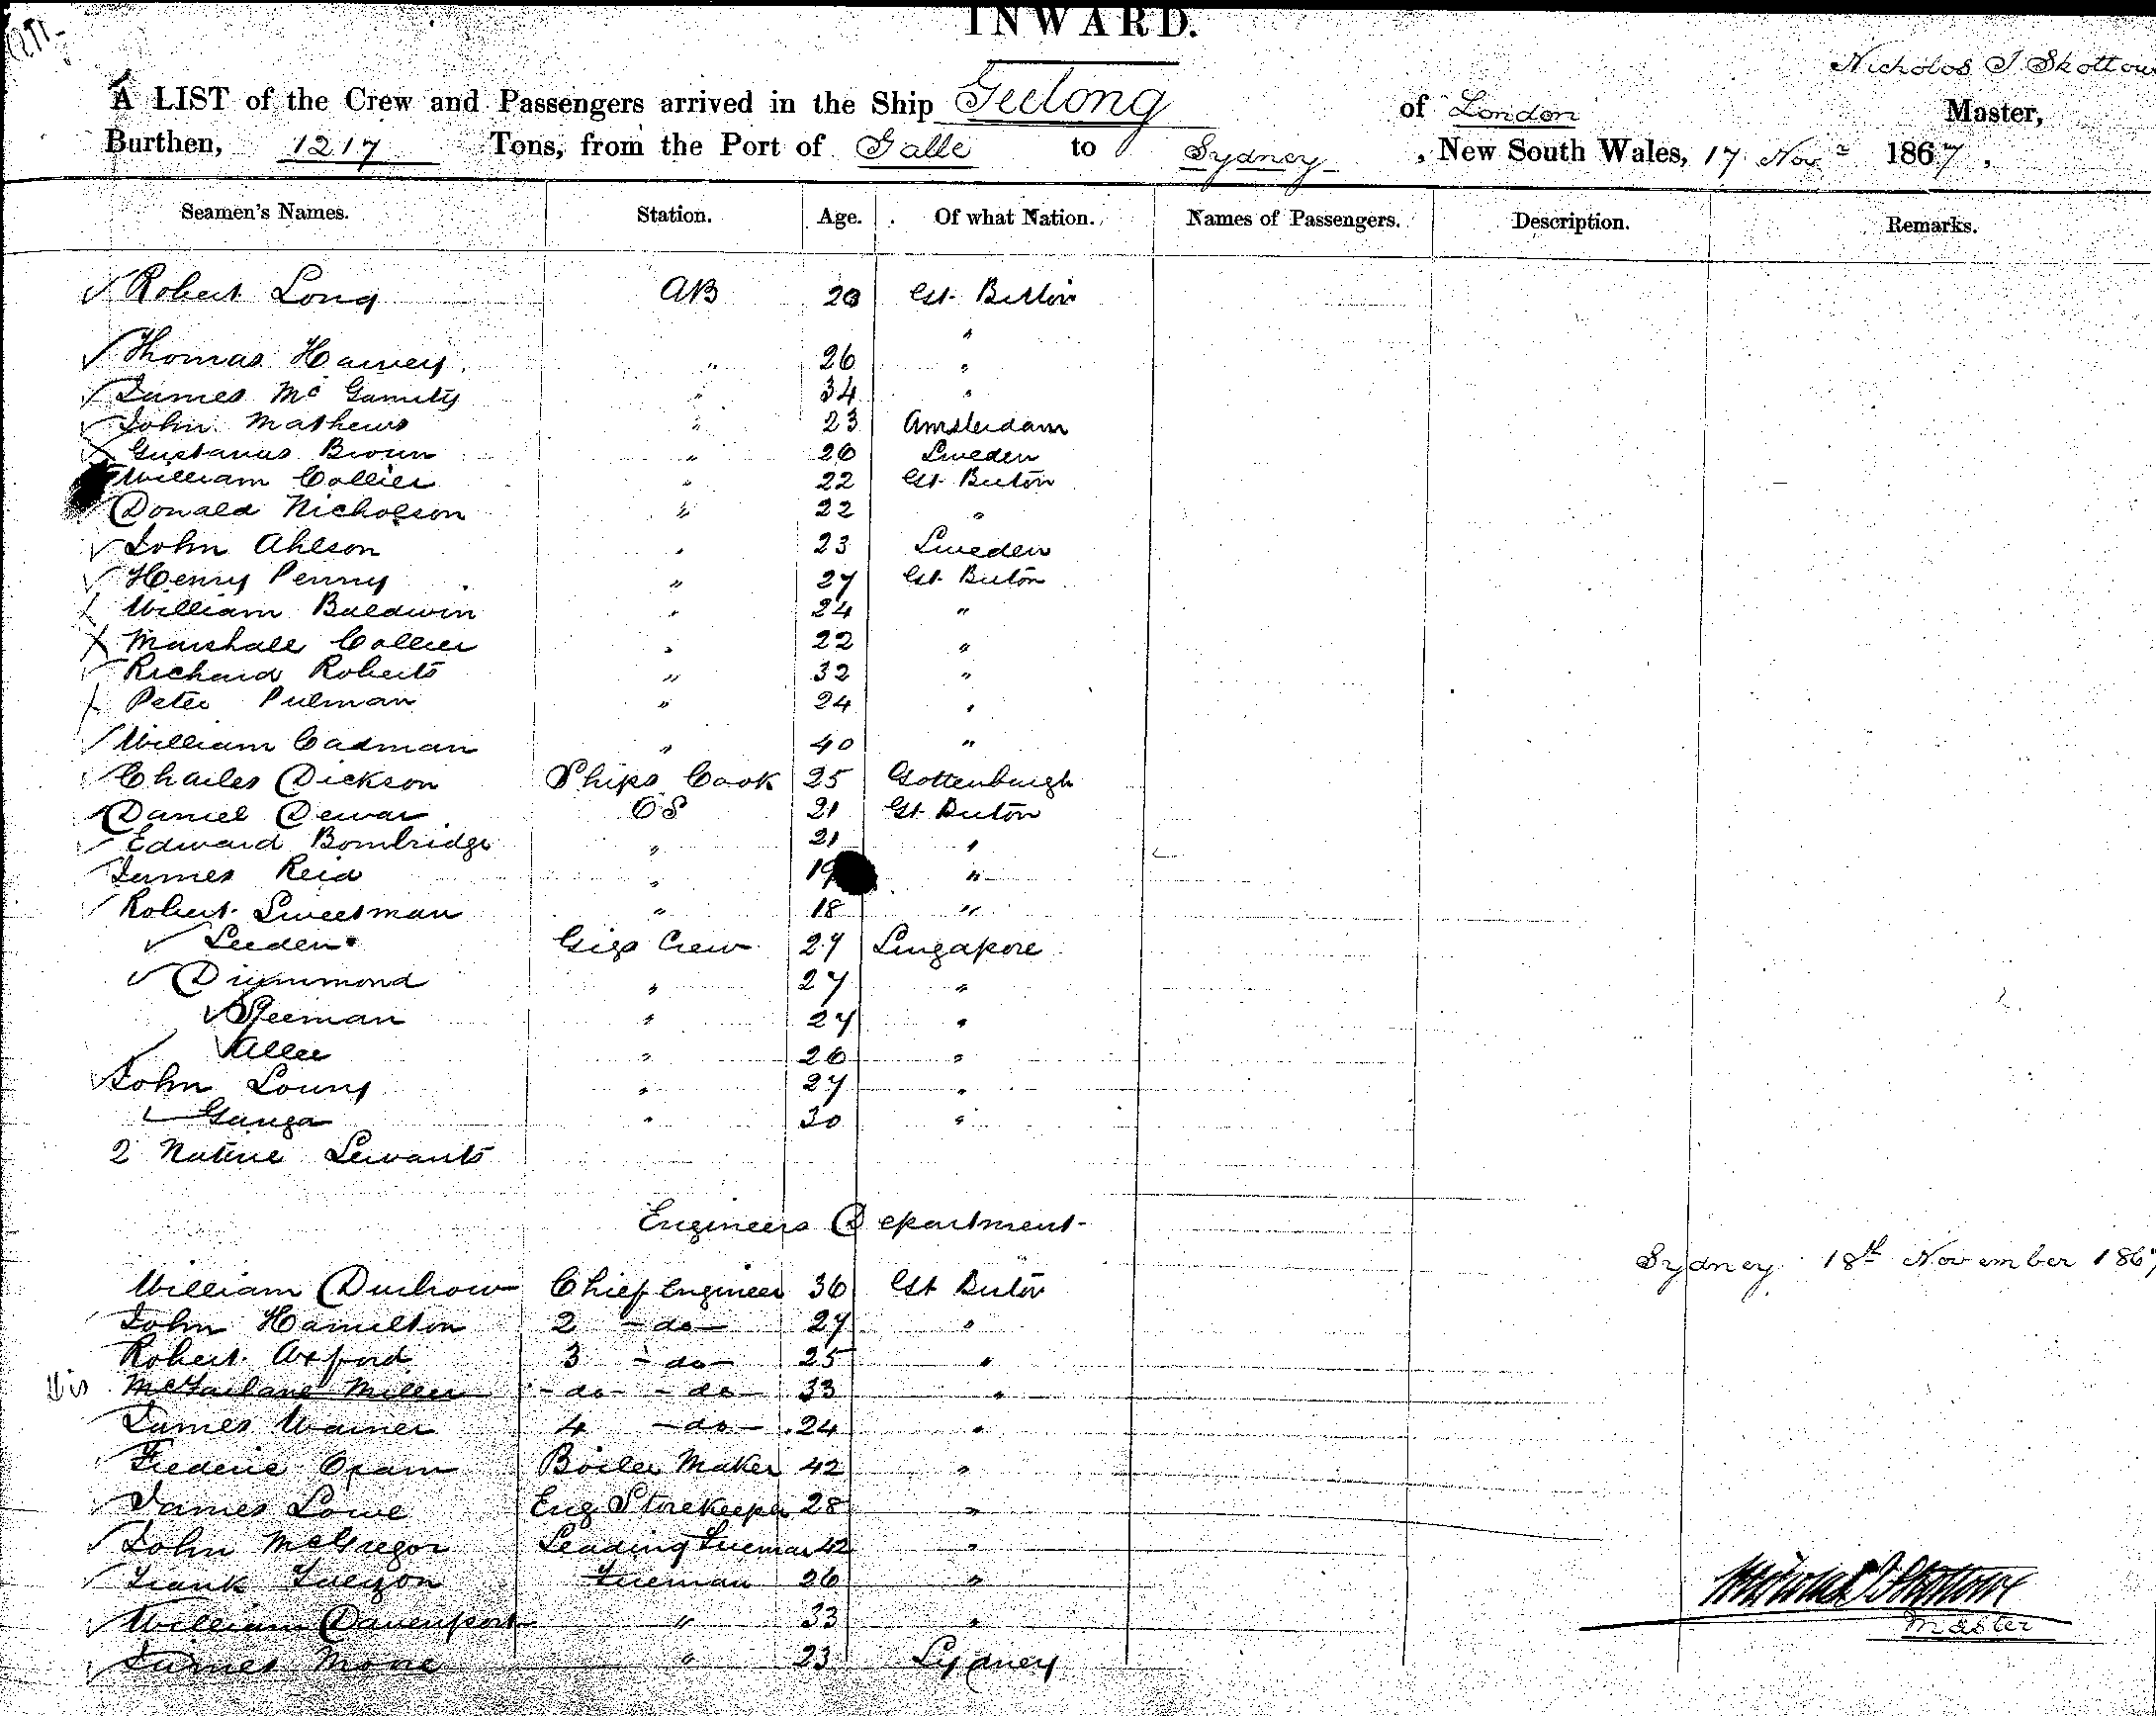 INWARD.
Nicholos I Skottowe
A LIST of the Crew and Passengers arrived in the Ship Geelong of London Master,
Burthen, 1217 Tons, from the Port of Galle to Sydney, New South Wales, 17 Nov 1867,
Seamen's Names. Station. Age. Of what Nation. Names of Passengers. Description. Remarks.
Robert Long AB Gt. Britain
"
Thomas Harvey " 26 "
James Mc Garrity " 34 "
John Mathews " 23 Amsterdam
Gustavus Brown " 26 Sweden
William Collier " 22 Gt. Britn
Donald Nicholson " 22 "
John Ahlson " 23 Sweden
Henry Penny " 27 Gt. Britn
William Baldwin " 24 "
Marshall Collier " 22 "
Richard Roberts " 32 "
Peter Pulman " 24 "
William Cadman " 40 "
Charles Dickson Ships Cook 25 Gottenburgh
Daniel Dewar OS 21 Gt. Britn
Edward Bombridge " 21 "
James Reid " 19 "
Robert Sweetman " 18 "
Seeden Gigs Crew 27 Singapore
Drummond " 27 "
" 27 "
Allee " 26 "
John Loung " 27 "
Ganga " 30 "
2 Native Servants
Engineers Department
Sydney 18th November 1867
William Duchow Chief Engineer 36 Gt Britn
John Hamilton 2 -do- 27 "
Robert Axford 3 -do- 25 "
McFarlane Miller -do- -do- 33 "
James Warner 4 -do- 24 "
Frederic Oram Boiler Maker 42 "
James Lowe Eng Storekeeper 28 "
John McGregor Leading Fireman 42 "
Frank Falezon Fireman 26 "
William Davenport " 33 "
James More " 23 Sydney
Nicholas I Skottowe
Master